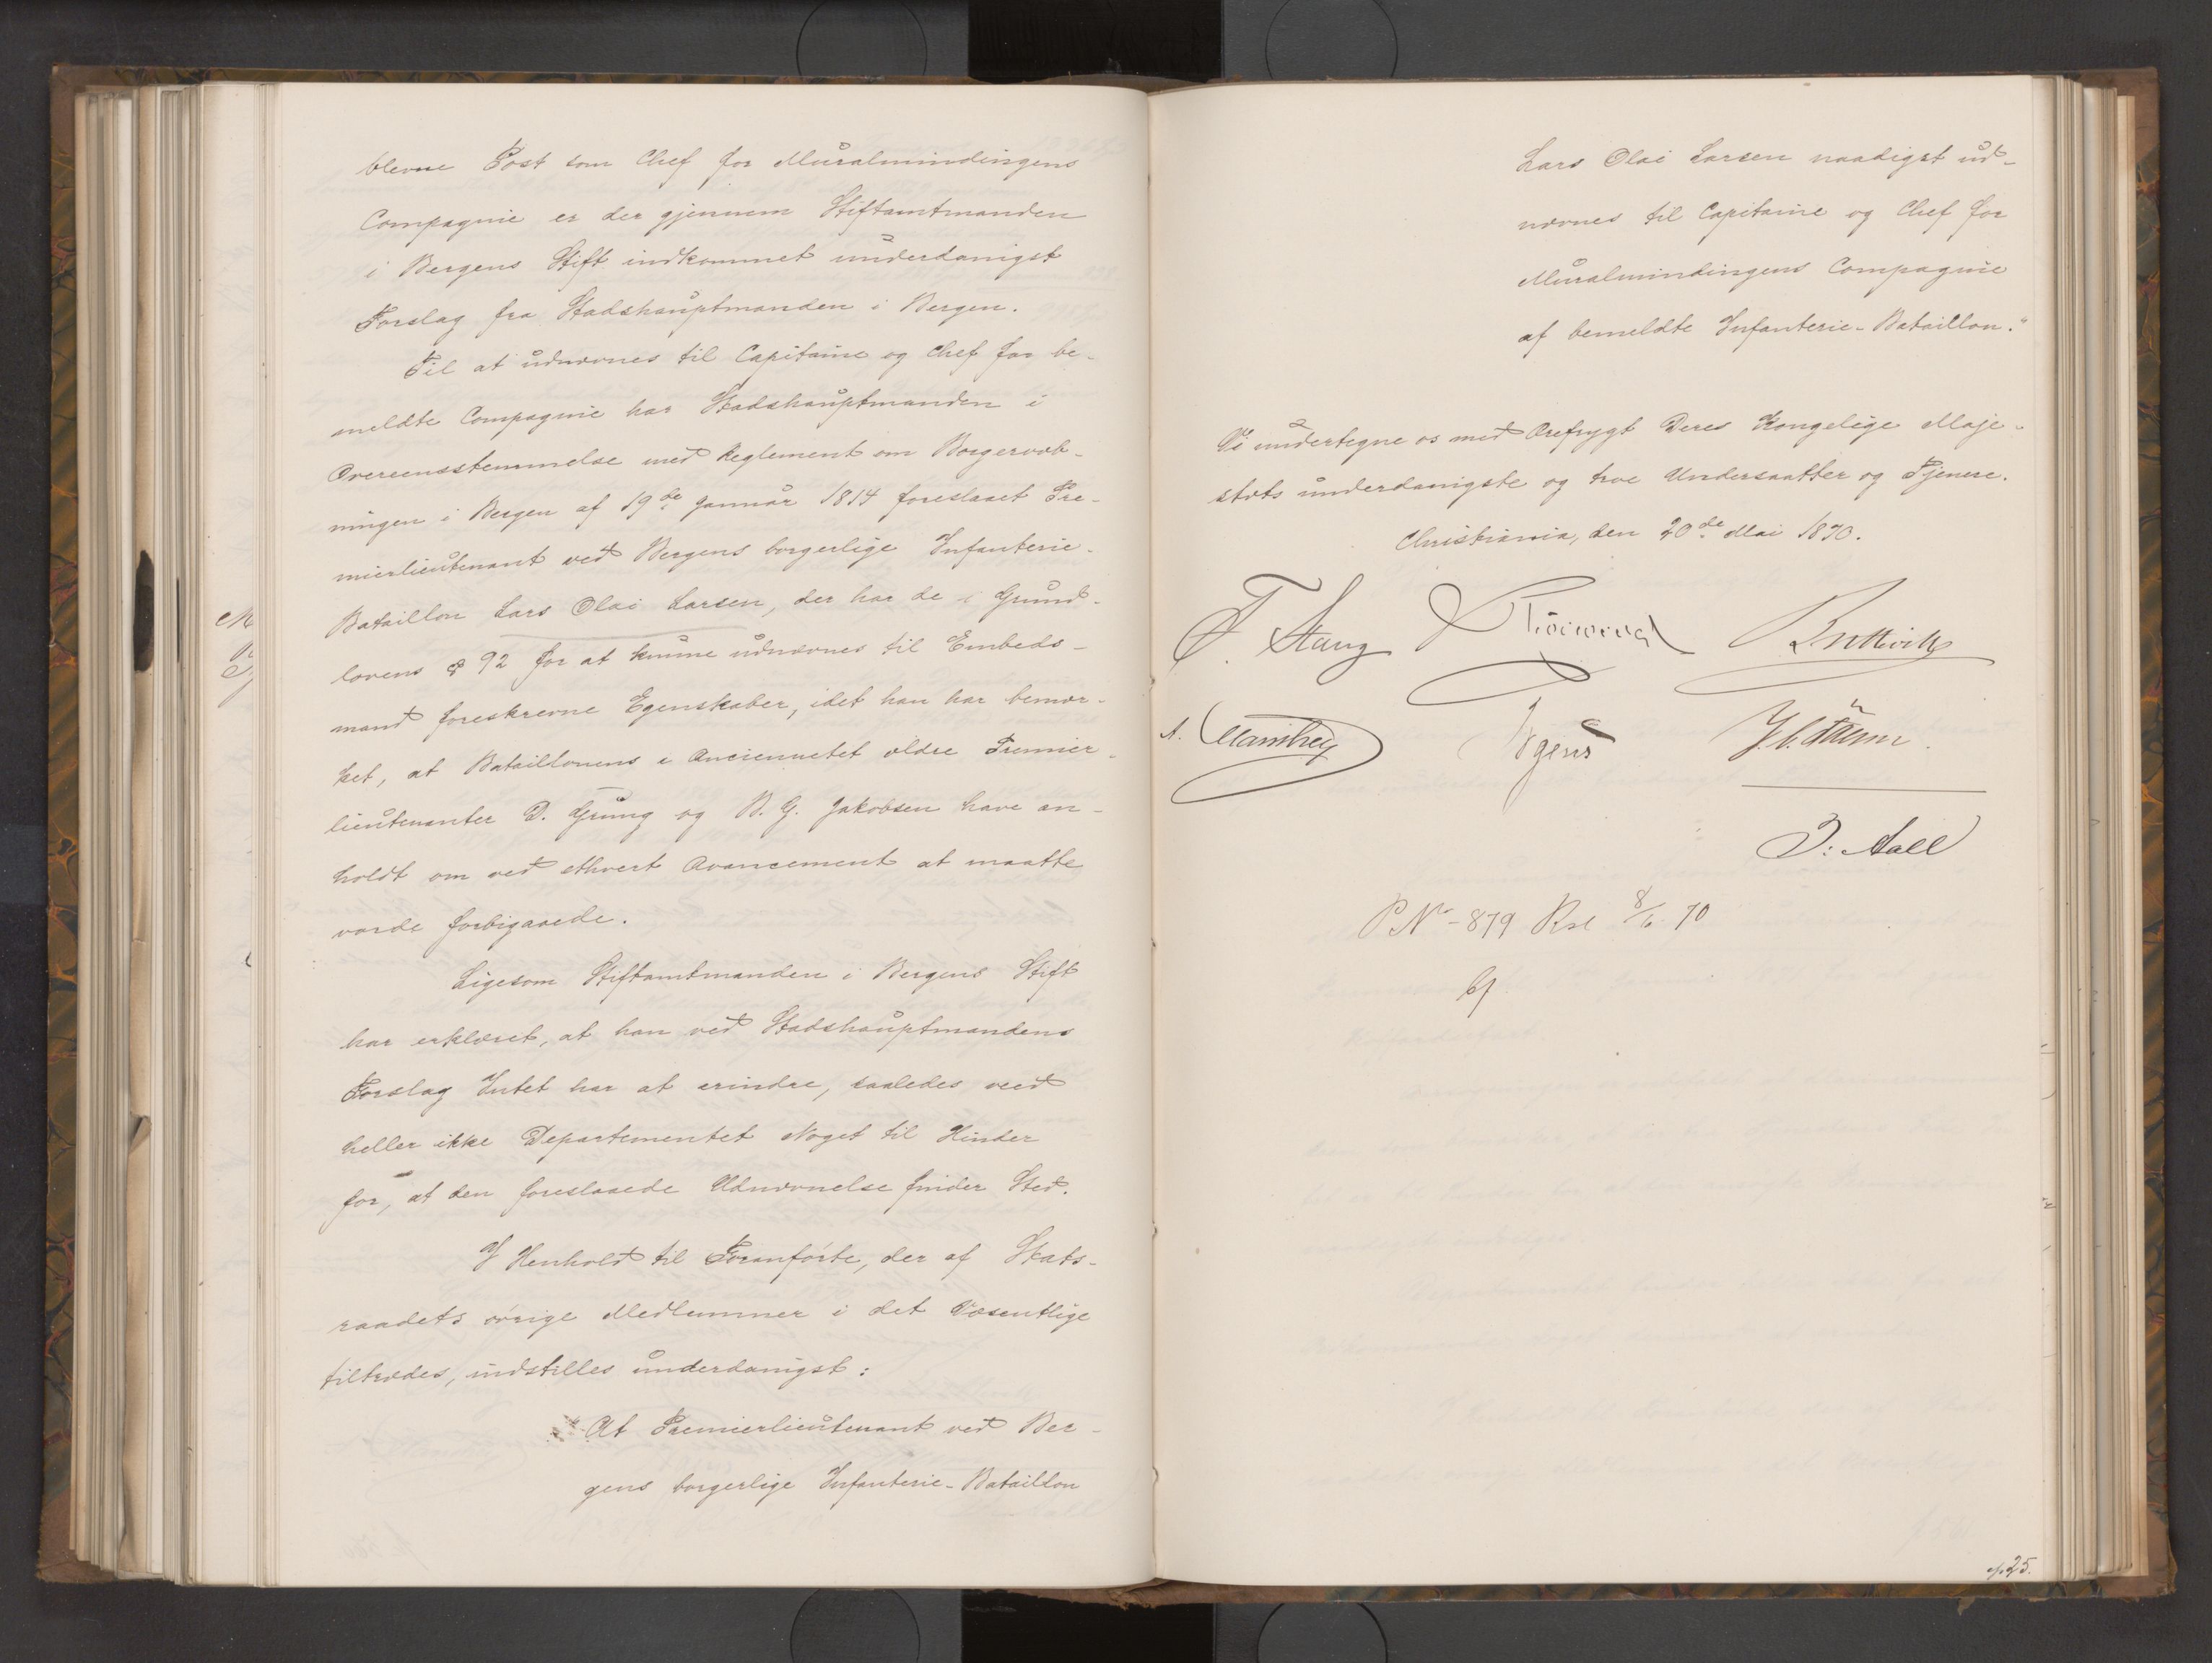 blevne Post som Chef for Muralmindingens
Compagnie er der gjennem Stiftamtmanden
i Bergens Stift indkommet underdanigst
Forslag fra Stadshauptmanden i Bergen.
Til at udnævnes til Capitaine og Chef for be-
meldte Compagnie har Stadshauptmanden i
Overeensstemmelse med Reglement om Borgervæb-
ningen i Bergen af 19de Januar 1814 foreslaaet Pre-
mierlieutenant ved Bergens borgerlige Infanterie-
Bataillon Lars Olai Larsen, der har de i Grund-
lovens § 92 for at kunne udnævnes til Embeds-
mand foreskrevne Egenskaber, idet han har bemær-
ket, at Bataillonens i Anciennetet ældre Premier-
lieutenanter D. Grung og B. G. Jakobsen have an-
holdt om ved ethvert Avancement at maatte
vorde forbigaaede.
Ligesom Stiftamtmanden i Bergens Stift
har erklæret, at han ved Stadshauptmandens
Forslag Intet har at erindre, saaledes veed
heller ikke Departementet Noget til Hinder
for, at den foreslaaede Udnævnelse finder Sted.
I Henhold til Foranførte, der af Stats-
raadets øvrige Medlemmer i det Væsentlige
tiltrædes, indstilles underdanigst:
"At Premierlieutenant ved Ber-
gens borgerlige Infanterie-Bataillon
Lars Olai Larsen naadigst ud-
nævnes til Capitaine og Chef for
Muralmindingens Compagnie
af bemeldte Infanterie-Bataillon."
Vi undertegne os med Ærefrygt Deres Kongelige Maje-
stæts underdanigste og troe Undersaatter og Tjenere.
Christiania, den 20de Mai 1870.
F. Stang Bretteville
Irgens
J. Aall
P No 879 Rsl 8/6 70
p. 25.